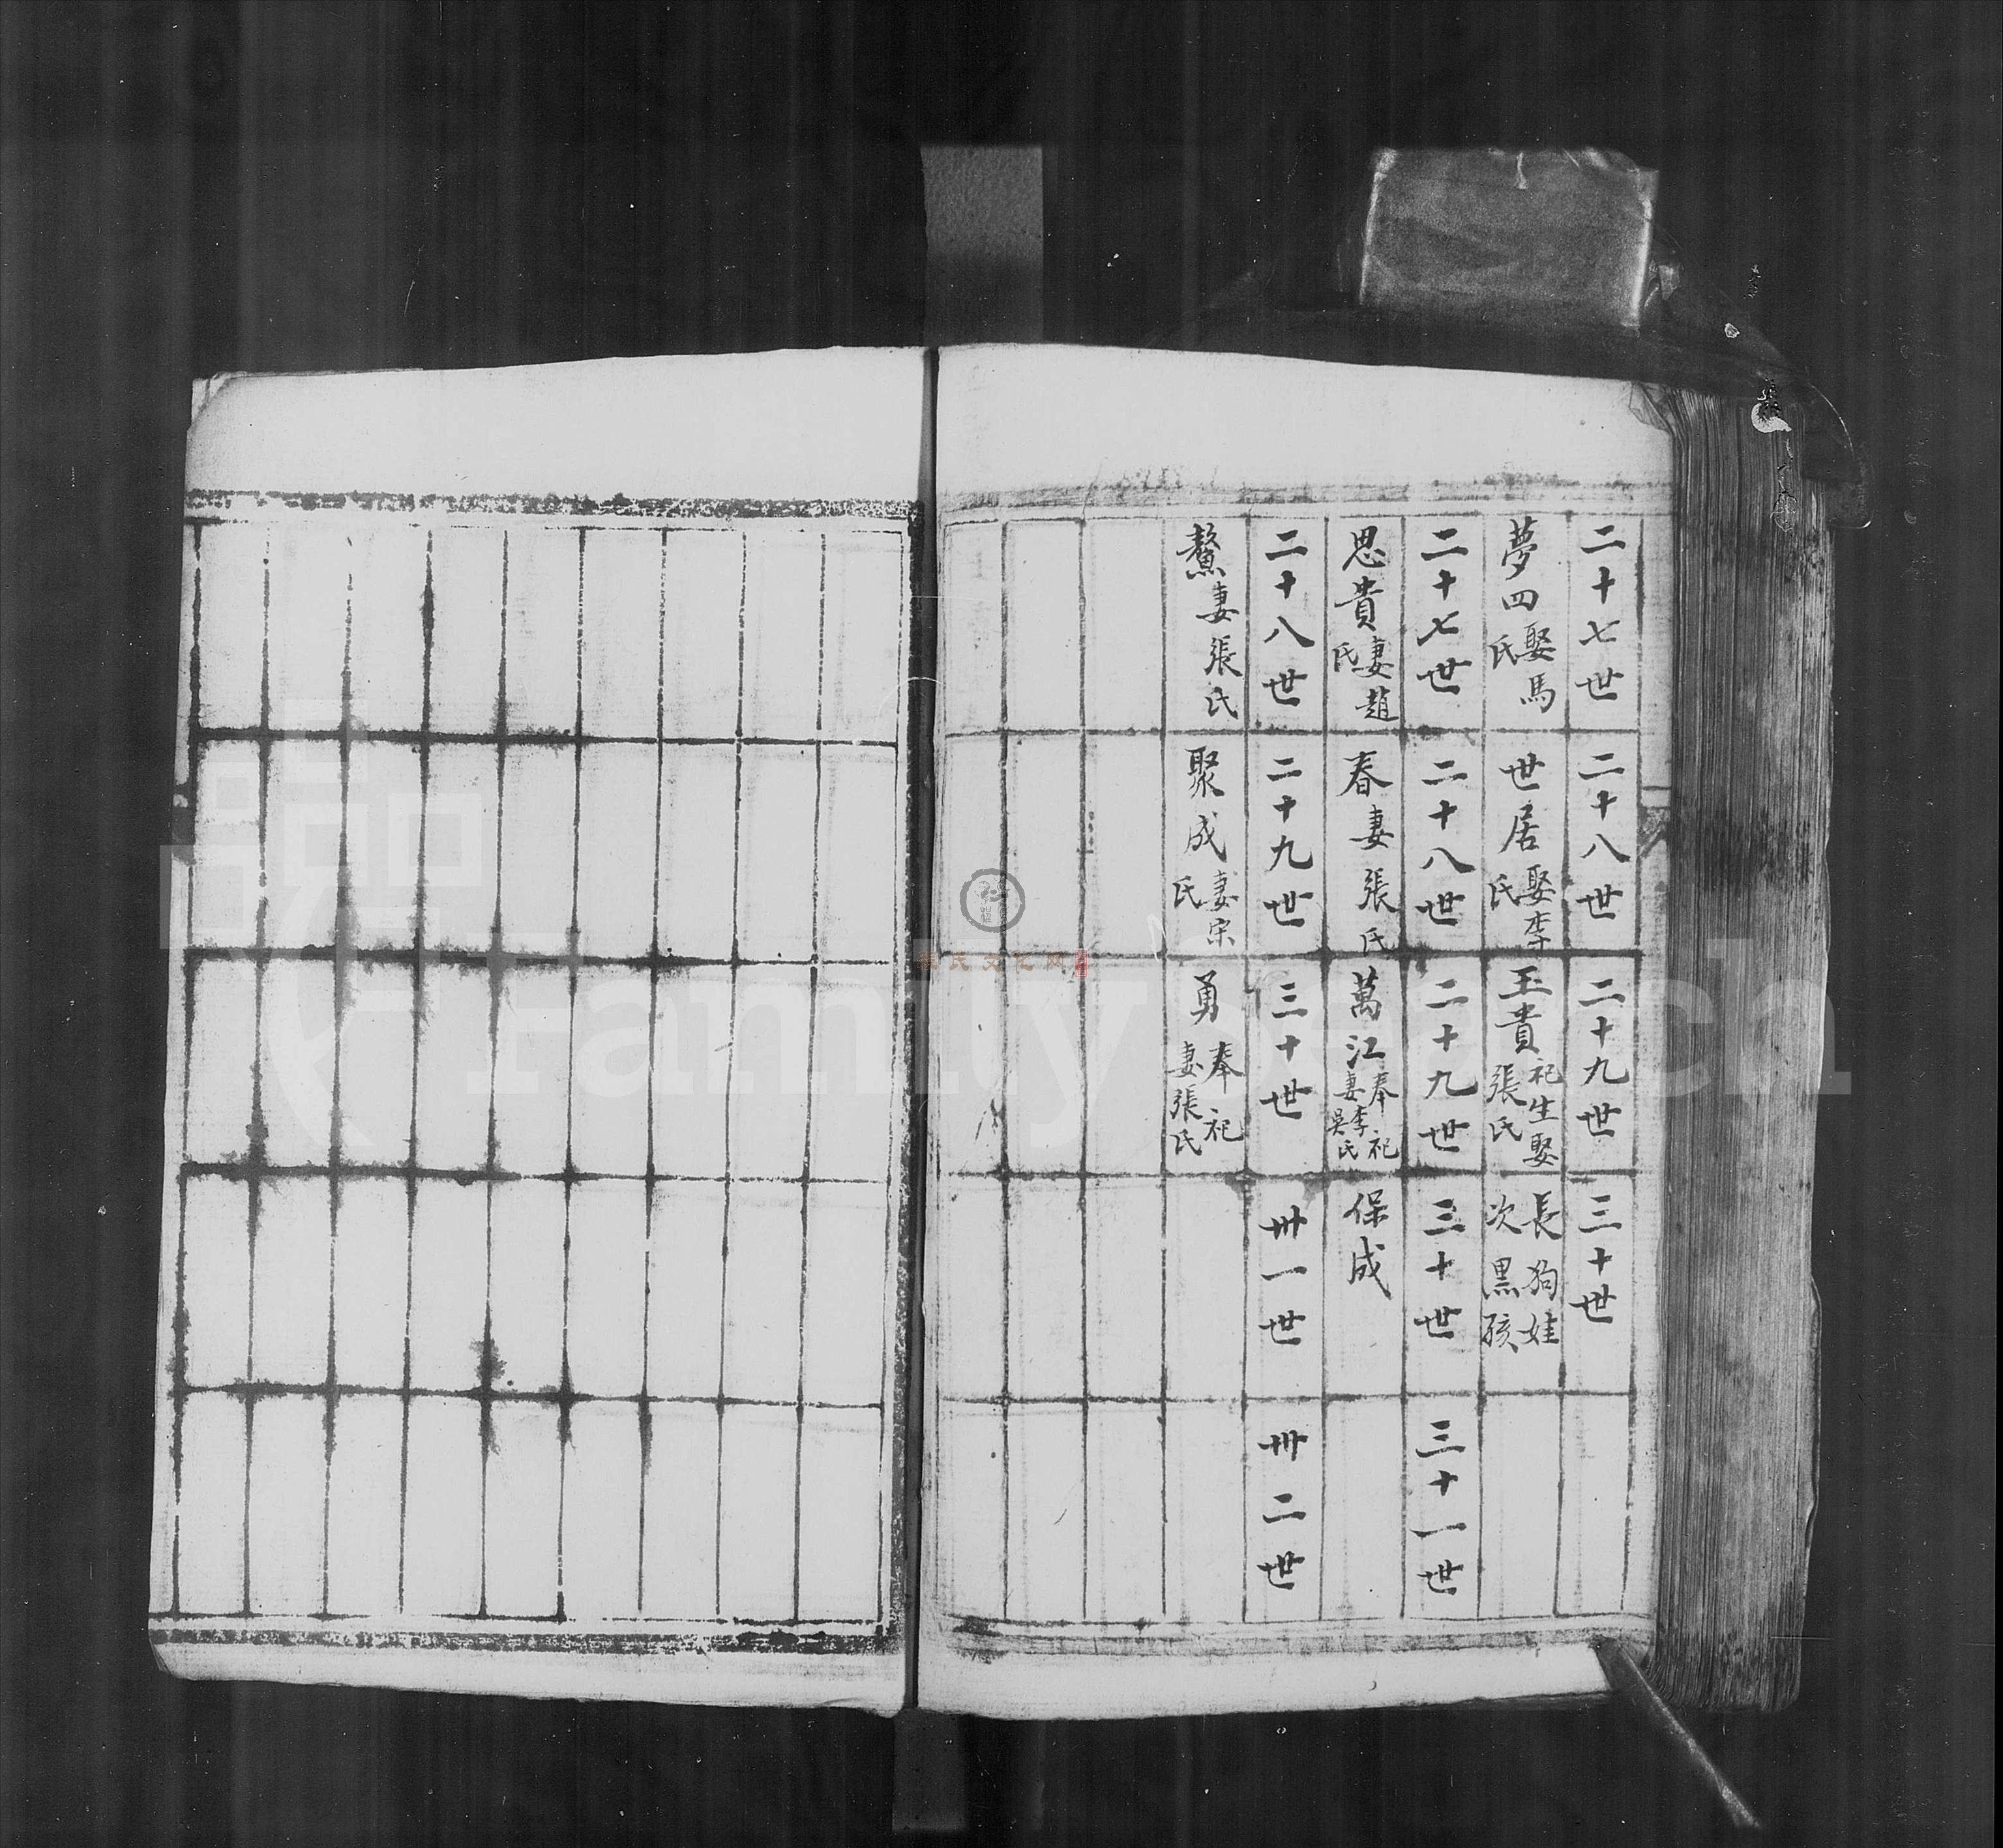 二十七世
二十八世
二十九世
三十世
夢四娶馬氏
世居娶李氏
玉貴祀生娶張氏
長狗娃次黑孩
二十七世
二十八世
二十九世
三十世
三十一世
思貴妻趙氏
春妻張氏
萬江奉祀妻李吳氏
保成
二十八世
二十九世
三十世
卅一世
卅二世
鰲妻張氏
聚成妻宗氏
勇奉祀妻張氏
FamilySearch